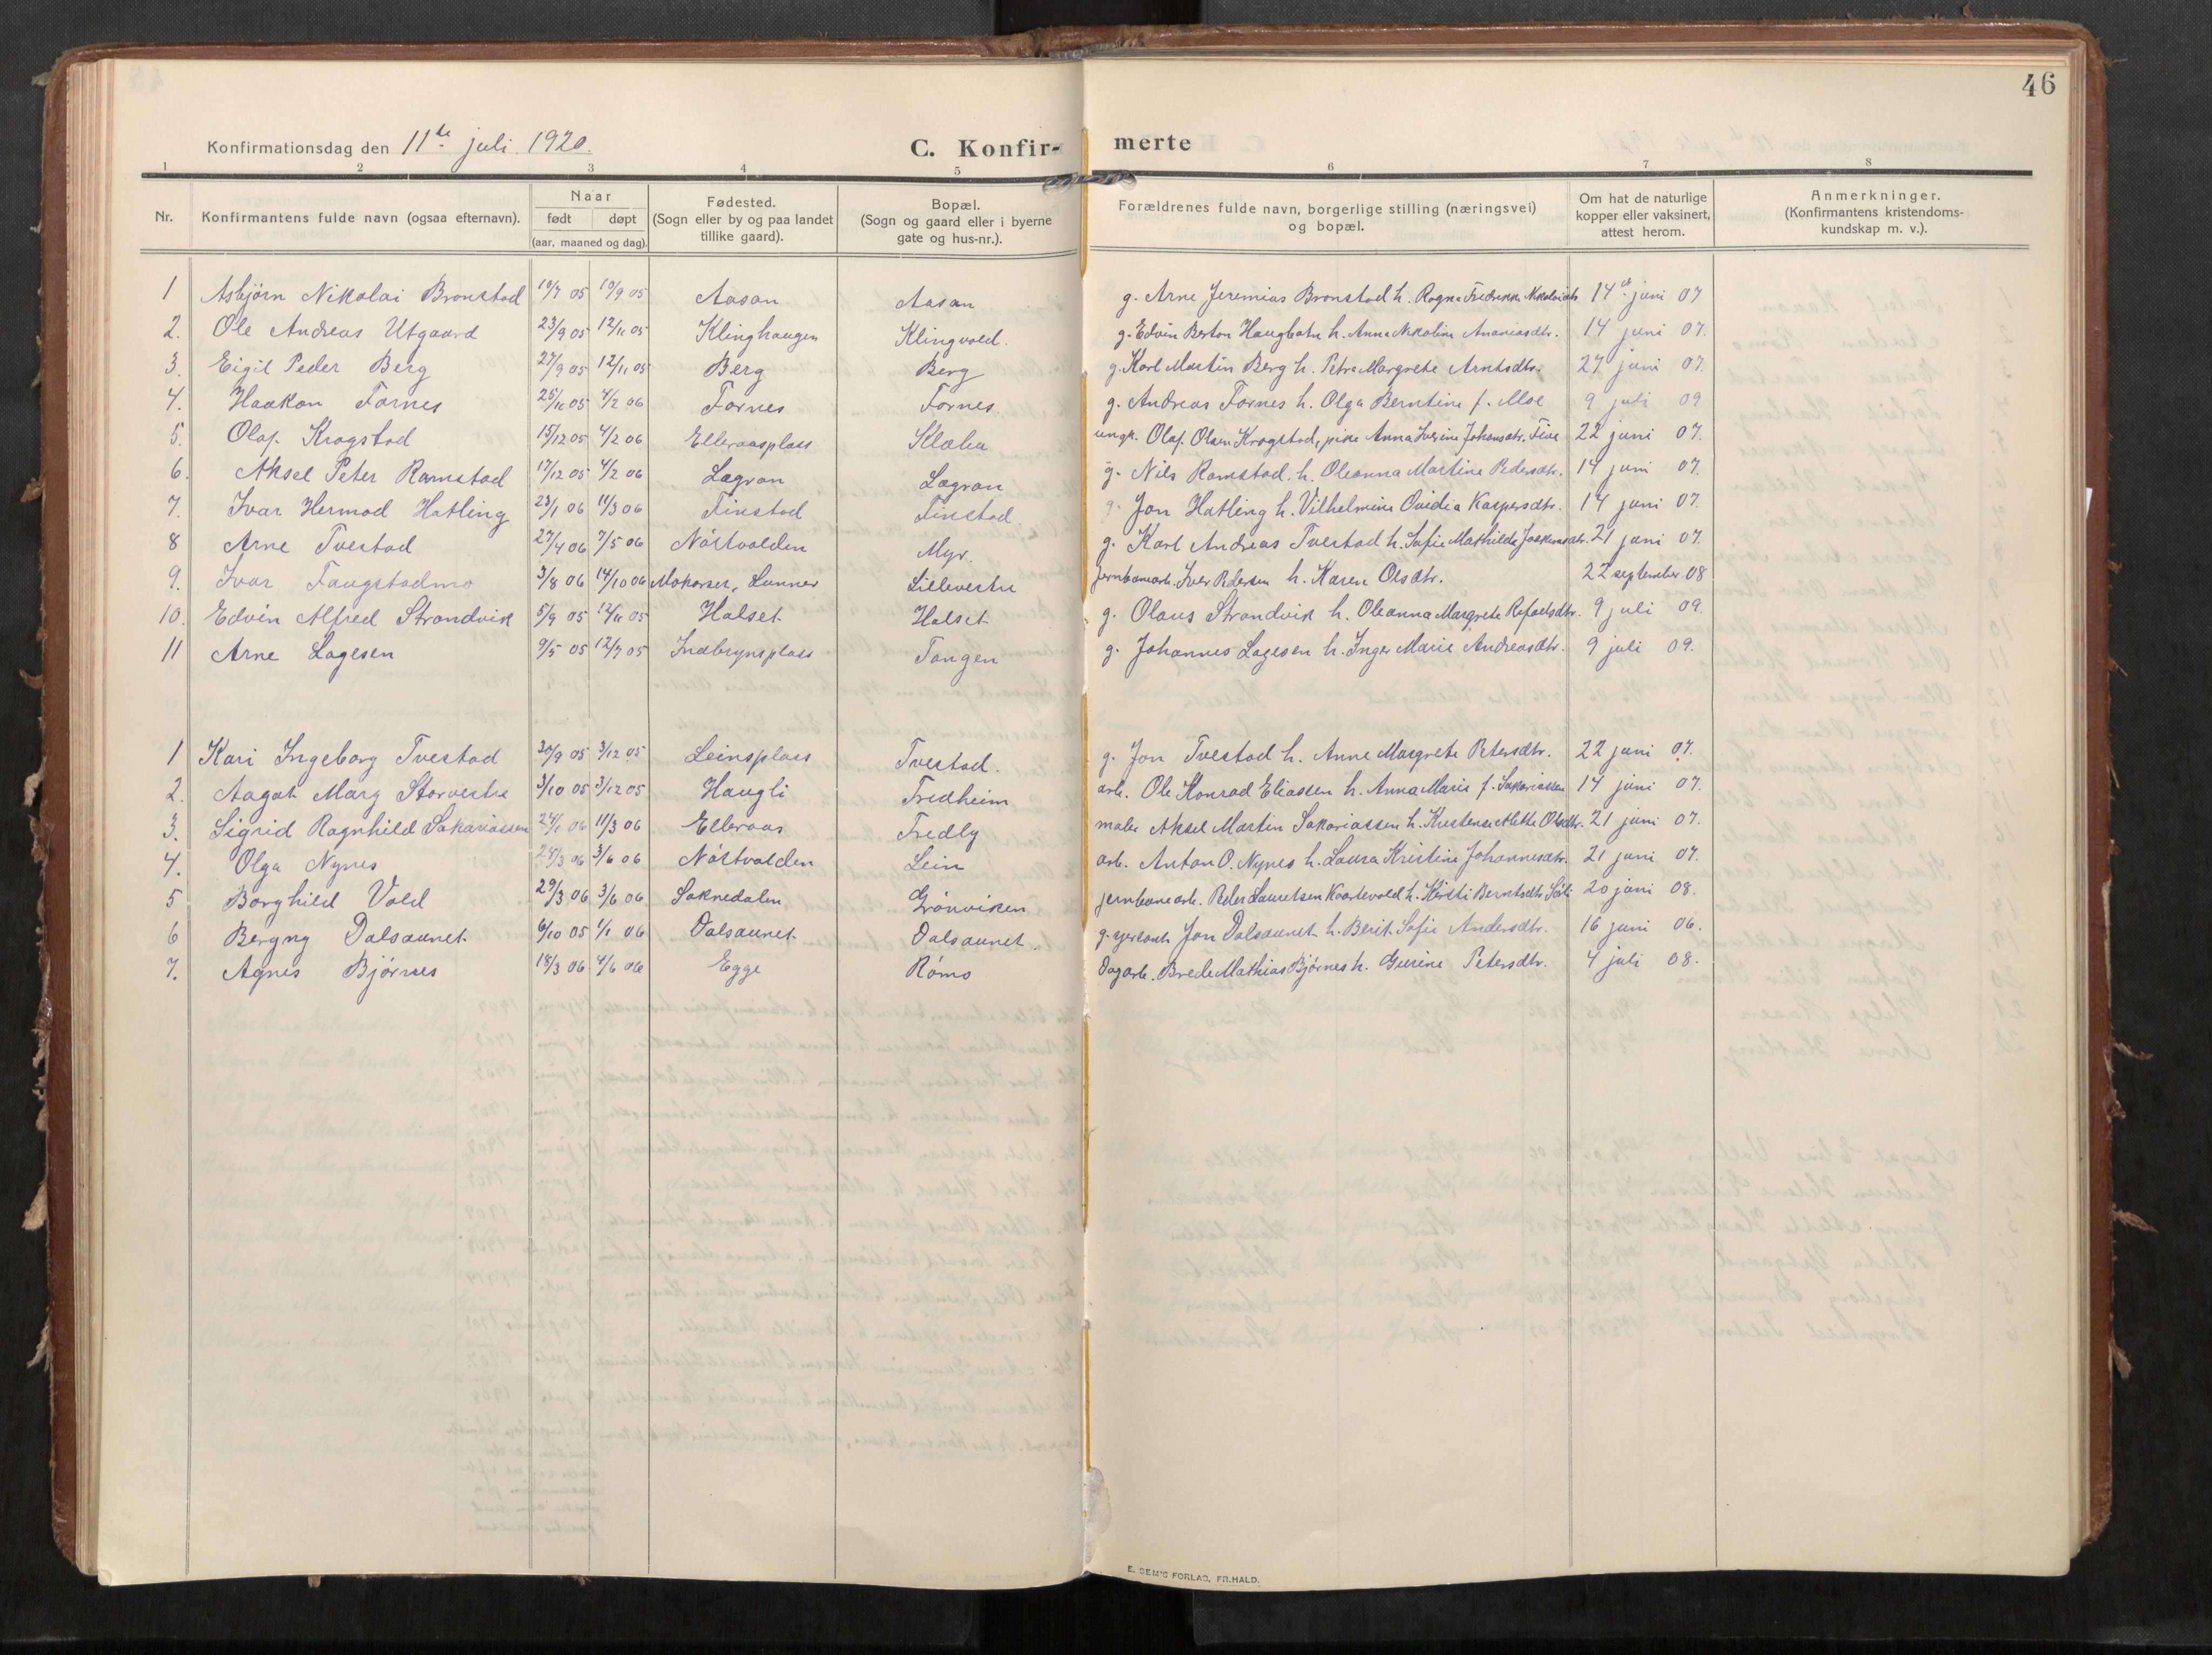 46
Konfirmationsdag den 11te juli 1920.
C. Konfir- merte
1 2 3 4 5 6 7 8
Nr. Konfirmantens fulde navn (ogsaa efternavn). Naar født døpt (aar, maaned og dag). Fødested. (Sogn eller by og paa landet tillike gaard). Bopæl. (Sogn og gaard eller i byerne gate og hus-nr.). Forældrenes fulde navn, borgerlige stilling (næringsvei) og bopæl. Om hat de naturlige kopper eller vaksinert, attest herom. Anmerkninger. (Konfirmantens kristendoms- kundskap m. v.).
1 Asbjørn Nikolai Bronstad 10/7 05 10/9 05 Aasan Aasan g. Arne Jeremias Bronstad h. Ragna Fredrikke Nikolaidtr. 14de juni 07
2. Ole Andreas Utgaard 23/9 05 12/11 05 Klinghaugen Klingvold. g. Edvin Berton Haugbotn h. Anna Nikoline Ananiasdtr. 14 juni 07.
3. Eigil Peder Berg 27/9 05 12/11 05 Berg Berg g. Karl Martin Berg h. Petra Margrete Arntsdtr. 27 juni 07.
4. Haakon Fornes 25/11 05 4/2 06 Fornes Fornes. g. Andreas Fornes h. Olga Berntine f. Moe 9 juli 09
5. Olaf Krogstad 15/12 05 4/2 06 Elleraasplass ungk. Olaf Olsen Krogstad, pike Anna Iverine Johansdtr. 22 juni 07.
6. Aksel Peter Ramstad 17/12 05 4/2 06 Lagran Lagran g. Nils Ramstad. h. Oleanna Martine Pedersdtr. 14 juni 07.
7. Ivar Hermod Hatling 23/1 06 11/3 06 Finstad Finstad. g. Jon Hatling h. Vilhelmine Ovidia Kaspersdtr. 14 juni 07.
8 Arne Tvestad 27/4 06 7/5 06 Nöstvolden Myr. g. Karl Andreas Tvestad h. Sofie Mathilde 21 juni 07.
9. Ivar Faugstadmo 3/8 06 14/10 06 Mokorset, Lunner Lillevestre jernbanearb. Iver Pedersen h. Karen Olsdtr. 22 september 08
10. Edvin Alfred Strandvik 5/9 05 12/11 05 Halset Halset g. Olaus Strandvik h. Oleanna Margrete Rafaelsdtr. 9 juli 09.
11 Arne Lagesen 9/5 05 12/7 05 Indbrynsplass Tangen g. Johannes Lagesen h. Inger Marie Andreasdtr. 9 juli 09.
1 Kari Ingeborg Tvestad 30/9 05 3/12 05 Leinsplass Tvestad. g. Jon Tvestad h. Anne Margrete Petersdtr. 22 juni 07.
2. Aagot Marg Storvestre 3/10 05 3/12 05 Haugli Fredheim arb. Ole Konrad Eliassen h. Anna Marie f. Sakariassen 14 juni 07.
3. Sigrid Ragnhild Sakariassen 24/1 06 11/3 06 Elleraas Fredly maler Aksel Martin Sakariassen h. Kirstense Mette Olsdtr. 21 juni 07.
4. Olga Nynes 28/3 06 3/6 06 Nöstvolden Lein arb. Anton O. Nynes h. Laura Kristine Johannesdtr. 21 juni 07.
5 Borghild Vold 29/3 06 3/6 06 Soknedalen Grönviken jernbanearb. Peder Lauretsen h. Kirsti Berntsdtr. 20 juni 08.
6 Bergny Dalsaunet. 6/10 05 1/1 06 Dalsaunet Dalsaunet. g. Jon Dalsaunet h. Berit Sofie Andersdtr. 16 juni 06.
7. Agnes Bjørnes 18/3 06 4/6 06 Egge Römo Dagarb. Brede Mathias Bjørnes h. Gurine Petersdtr. 4 juli 08.
E. SEM'S FORLAG, FR.HALD.